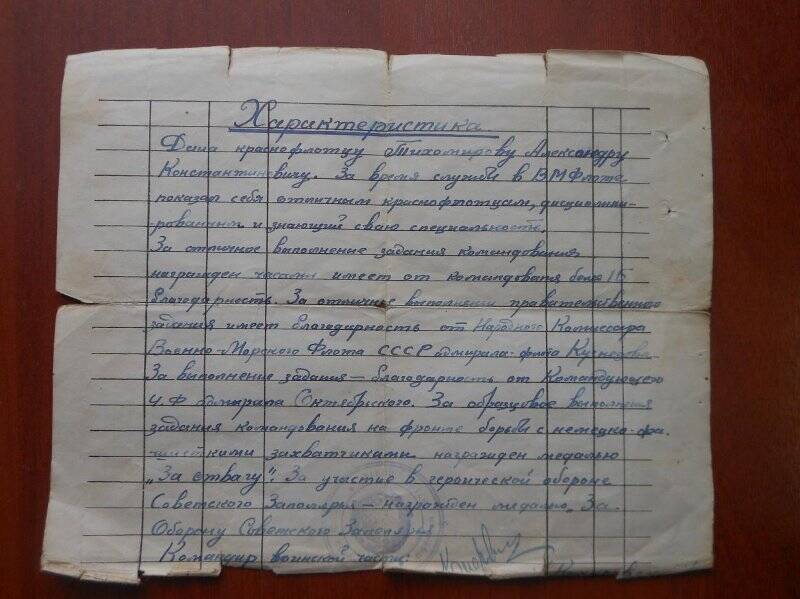 Характеристика
Дана краснофлотцу Тихомирову Александру
Константиновичу. За время службы в ВМФлота
показал себя отличным краснофлотцам, дисциплини-
рованным и знающий сваю специальность.
За отличное выполнение задания командования
награжден часами имеет от командования более 15
благодарность. За отличное выполнении правительственного
задания имеет благодарность от Народного Комиссара
Военно-Морского Флота СССР адмирала-флота Кузнецова
За выполнение задания – благодарность от Командующего
Ч.Ф адмирала Октябрьского. За образцовое выполнения
задания командования на фронте борьбы с немецко-фа-
шисткими захватчиками награжден медалью
„За отвагу". За участие в героической обороне
Советского Заполярья – награжден медалью „За
Оборону Советского Заполярья
Командир воинской части: